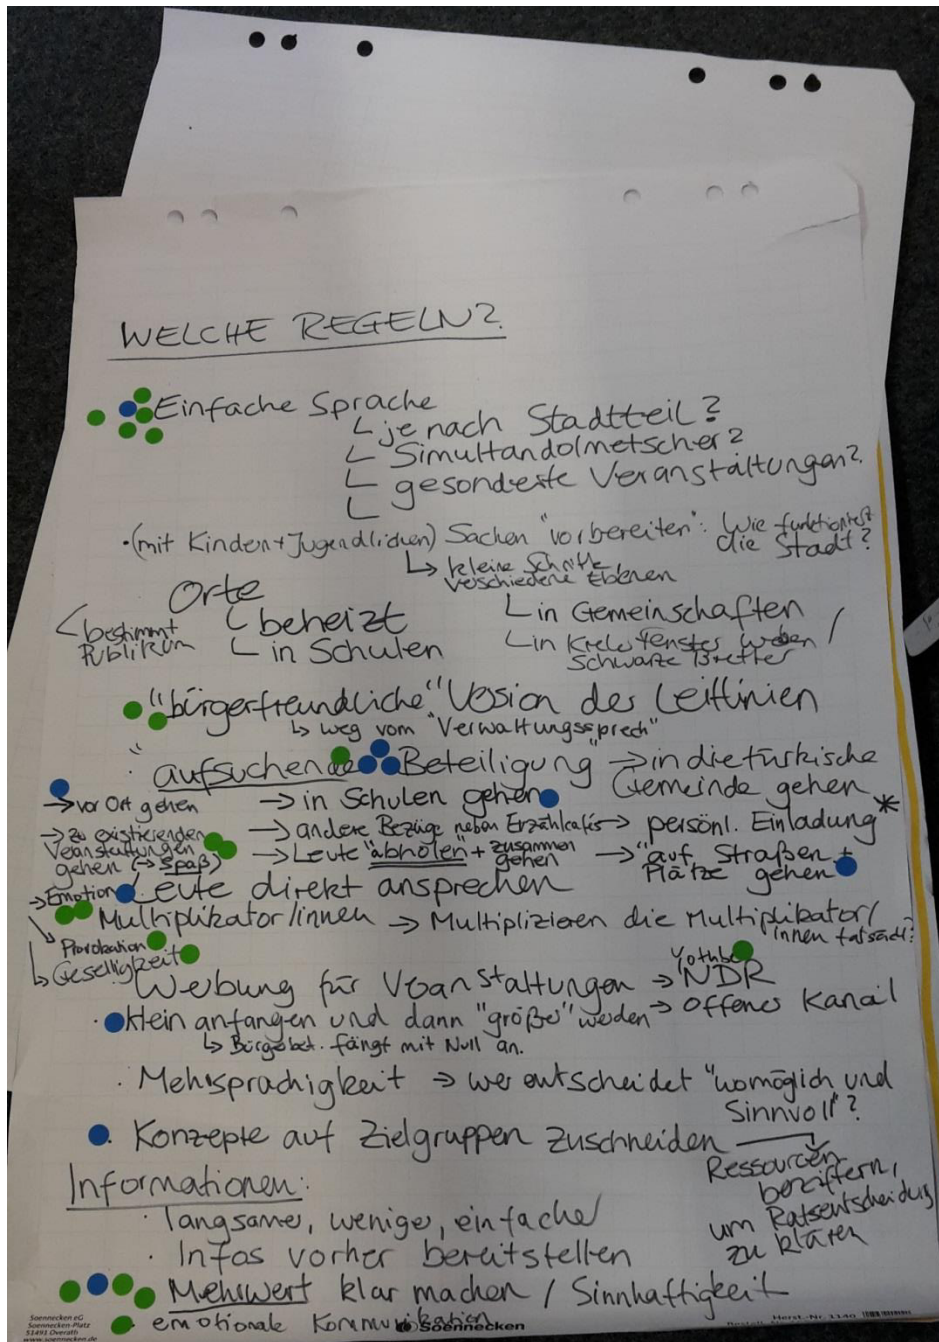 WELCHE REGELN?
Einfache Sprache
je nach Stadtteil?
Simultandolmetscher?
gesonderte Veranstaltungen?
(mit Kindern + Jugendlichen) Sachen "vorbereiten": Wie funktioniert
die Stadt?
kleine Schritte,
verschiedene Ebenen
Orte
bestimmt
Publikum
beheizt
in Schulen
in Gemeinschaften
werben /
Schwarze Bretter
"bürgerfreundliche" Version der Leitlinien
weg vom "Verwaltungssprech"
"aufsuchende Beteiligung" → in die türkische
Gemeinde gehen
→ vor Ort gehen
→ in Schulen gehen
→ zu existierenden
Veranstaltungen
gehen (→ Spaß)
→ andere Bezüge neben Erzählcafés → persönl. Einladung *
→ Leute "abholen" + zusammen
gehen
→ "auf Straßen +
Plätze gehen
→ Emotion
Leute direkt ansprechen
Multiplikator/innen → Multiplizieren die Multiplikator/
innen tatsächl?
Provokation
Geselligkeit
Werbung für Veranstaltungen → NDR
Yotube
→ offener Kanal
· klein anfangen und dann "größer" werden
Bürgerbet. fängt mit Null an.
· Mehrsprachigkeit → wer entscheidet "womöglich und
Sinnvoll"?
· Konzepte auf Zielgruppen zuschneiden
Ressourcen
beziffern,
um Ratsentscheidung
zu klären
Informationen:
· langsamer, weniger, einfacher
· Infos vorher bereitstellen
Mehrwert klar machen / Sinnhaftigkeit
· emotionale Kommunikation
Soennecken eG
Soennecken-Platz
51491 Overath
www.soennecken.de
Soennecken